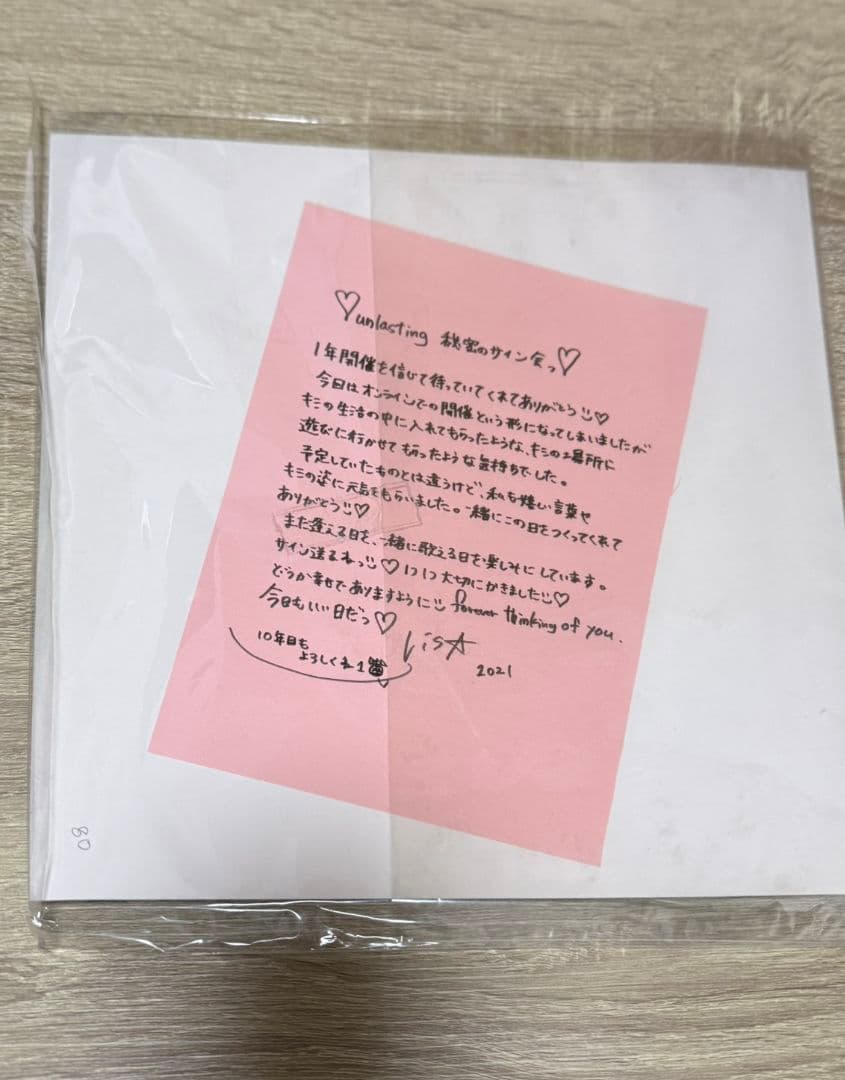 ♡unlasting 秘密のサイン会っ♡
1年開催を信じて待っていてくれてありがとう♡
今日はオンラインでの開催という形になってしまいましたが
キミの生活の中に入れてもらったような、キミの場所に
遊びに行かせてもらったような気持ちでした。
予定していたものとは違うけど、私も嬉しい言葉や
キミの姿に元気をもらいました。一緒にこの日をつくってくれて
ありがとう♡
また逢える日を、一緒に歌える日を楽しみにしています。
サイン送るねっ♡1つ1つ大切にかきました♡
どうか幸せでありますように forever thinking of you.
今日もいい日だっ♡
LiSA
10年目も
よろしくね
2021
80